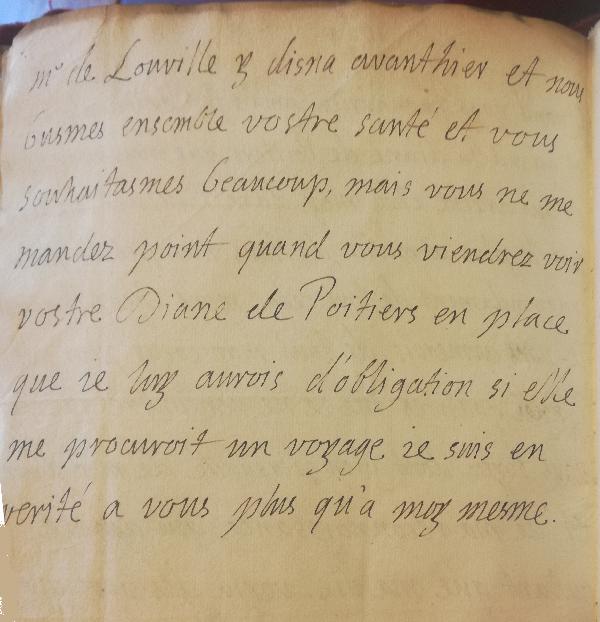 mr de Louville y disna avanthier et nous
busmes ensemble vostre santé et vous
souhaitasmes beaucoup, mais vous ne me
mandez point quand vous viendrez voir
vostre Diane de Poitiers en place
que ie luy aurois d'obligation si elle
me procuroit un voyage ie suis en
verité a vous plus qu'a moy mesme.